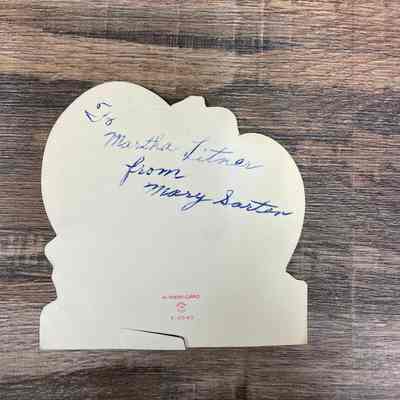 To
Martha Titner
from
Mary Sorten
A-MERI-CARD